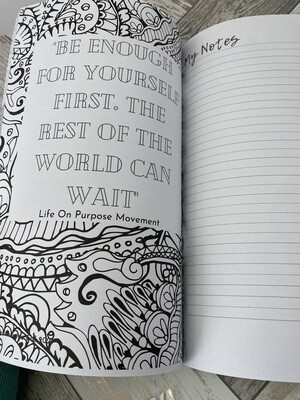 "BE ENOUGH
FOR YOURSELF
FIRST. THE
REST OF THE
WORLD CAN
WAIT"
Life On Purpose Movement
My Notes